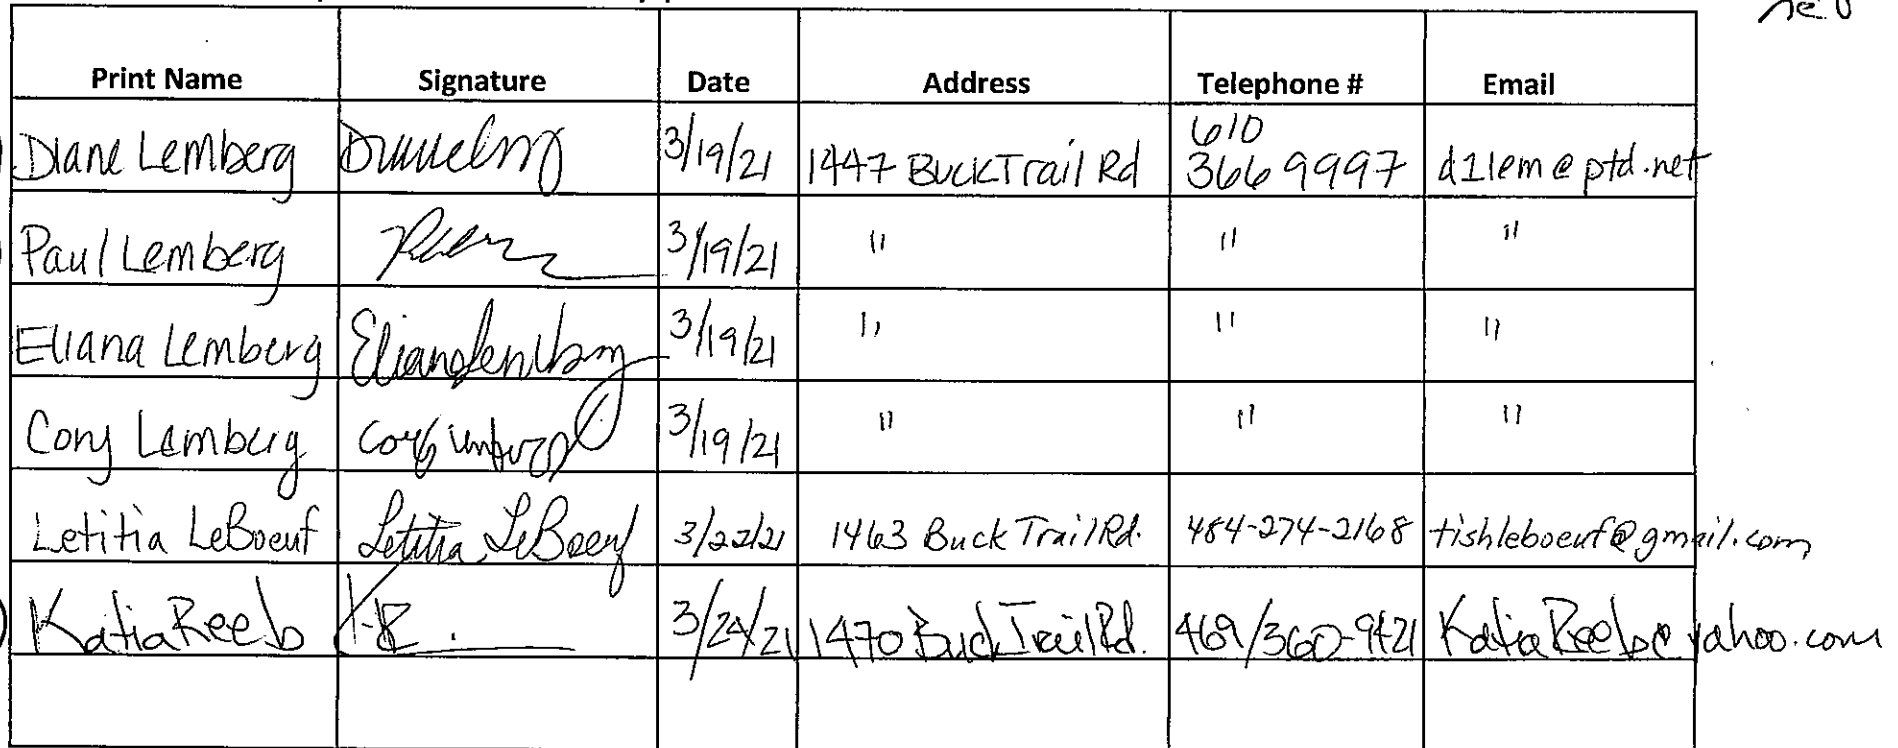 Print Name Signature Date Address Telephone # Email
Diane Lemberg 3/19/21 1447 Buck Trail Rd 610 366 9997 d1lem@ptd.net
Paul Lemberg 3/19/21 " " "
Eliana Lemberg Eliana Lemberg 3/19/21 " " "
Cory Lemberg 3/19/21 " " "
Letitia LeBoeuf Letitia LeBoeuf 3/22/21 1463 Buck Trail Rd. 484-274-2168 tishleboeuf@gmail.com
Katia Reeb 3/24/21 1470 Buck Trail Rd. 469/360-9421 KatiaReeb@yahoo.com